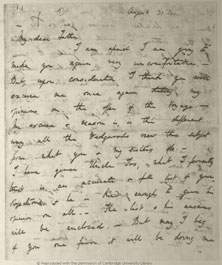 August 31
My dear Father
I am afraid I am going to
make you again very uncomfortable.—
But upon consideration, I think you will
excuse me once again stating my
opinions on the offer of the Voyage.—
My excuse & reason is, is the different
way all the Wedgwoods view the subject
from what you & my sisters do.—
I have given Uncle Jos, what I fervently
trust is an accurate & full list of your
objections, & he is kind enough to give his
opinion on all. The list & his answers
will be enclosed.— But may I beg
of you one favor it will be doing me
© Reproduced with the permission of Cambridge University Library